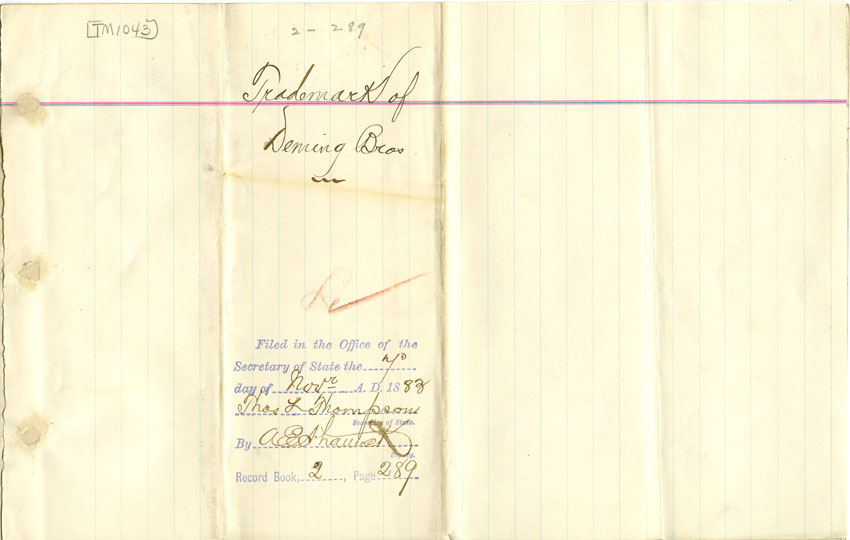 [TM1043]
2 - 289
Trademark of
Deming Bros
Filed in the Office of the
Secretary of State the
day of Novr A. D. 1883
Thos L Thompson
Secretary of State.
By
Deputy.
Record Book, 2, Page 289